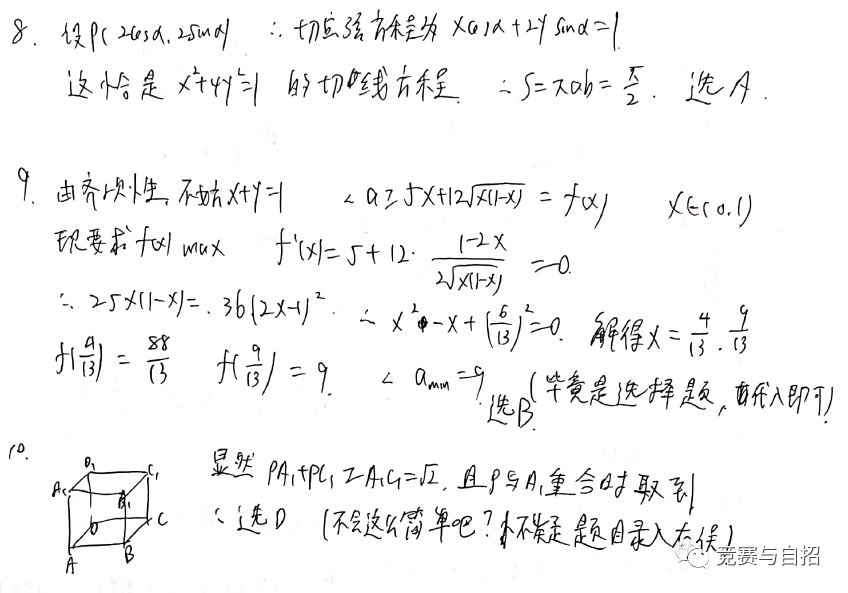 8. 设P(2cosα, 2sinα) ∴切点弦方程为 xcosα+2ysinα=1
这恰是 x²+4y²=1 的切线方程. ∴S=πab=π/2. 选A.
9. 由齐次性, 不妨x+y=1 ∴a≥5x+12√x(1-x) = f(x) x∈(0,1)
现要求f(x) max f'(x)=5+12·(1-2x)/(2√x(1-x))=0.
∴25x(1-x)=36(2x-1)². ∴x²-x+(6/13)²=0. 解得x=4/13, 9/13
f(4/13)=88/13 f(9/13)=9. ∴a min=9 选B. (毕竟是选择题, 直接代入即可)
10. 显然 PA₁+PC₁≥A₁C₁=√2, 且P与A₁重合时取到
∴选D (不会这么简单吧? 怀疑题目录入有误)
D₁ C₁ A₁ B₁ D C A B
竞赛与自招